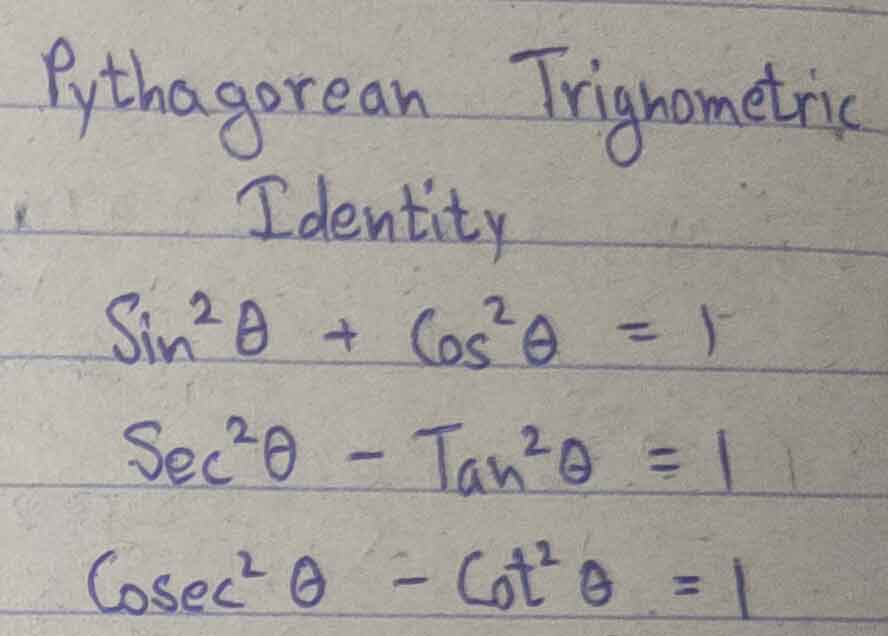 Pythagorean Trignometric
Identity
Sin²θ + Cos²θ = 1
Sec²θ - Tan²θ = 1
Cosec²θ - Cot²θ = 1